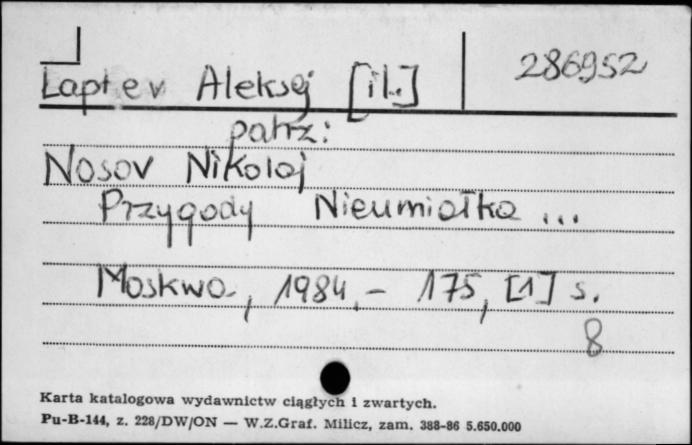 Laptev Aleksej [il.] 286952
patrz:
Nosov Nikolaj
Przygody Nieumiałka ...
Moskwa, 1984. - 175, [1] s.
8
Karta katalogowa wydawnictw ciągłych i zwartych.
Pu-B-144, z. 228/DW/ON — W.Z.Graf. Milicz, zam. 388-86 5.650.000